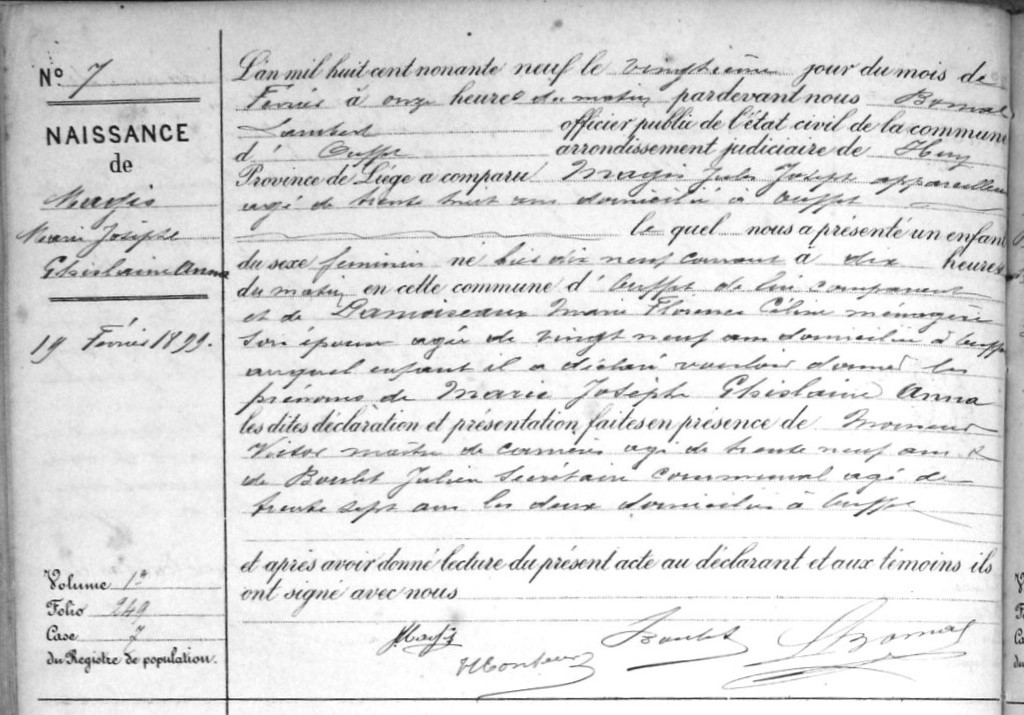 N° 7
NAISSANCE
de
Magis
Marie Josèphe
Ghislaine Anna
19 Février 1899.
Volume 1er
Folio 249
Case 7
du Registre de population.
L'an mil huit cent nonante neuf le vingtième jour du mois de
Février à onze heures du matin pardevant nous Bomal
Lambert officier public de l'état civil de la commune
d' Ouffet arrondissement judiciaire de Huy
Province de Liége a comparu Magis Jules Joseph appareilleur
agé de trente huit ans domicilié à Ouffet
le quel nous a présenté un enfant
du sexe feminin né hier dix neuf courant à dix heures
du matin en cette commune d' Ouffet de lui comparant
et de Damoiseaux Marie Florence Céline ménagère
son épouse agée de vingt neuf ans domiciliée à Ouffet
auquel enfant il a déclaré vouloir donner les
prénoms de Marie Josèphe Ghislaine Anna
les dites déclaration et présentation faites en présence de Monseur
Victor maître de carrières agé de trente neuf ans &
de Boulet Julien Secrétaire communal agé de
trente sept ans les deux domiciliés à Ouffet
et après avoir donné lecture du présent acte au déclarant et aux témoins ils
ont signé avec nous
JMagis
Boulet
LBomal